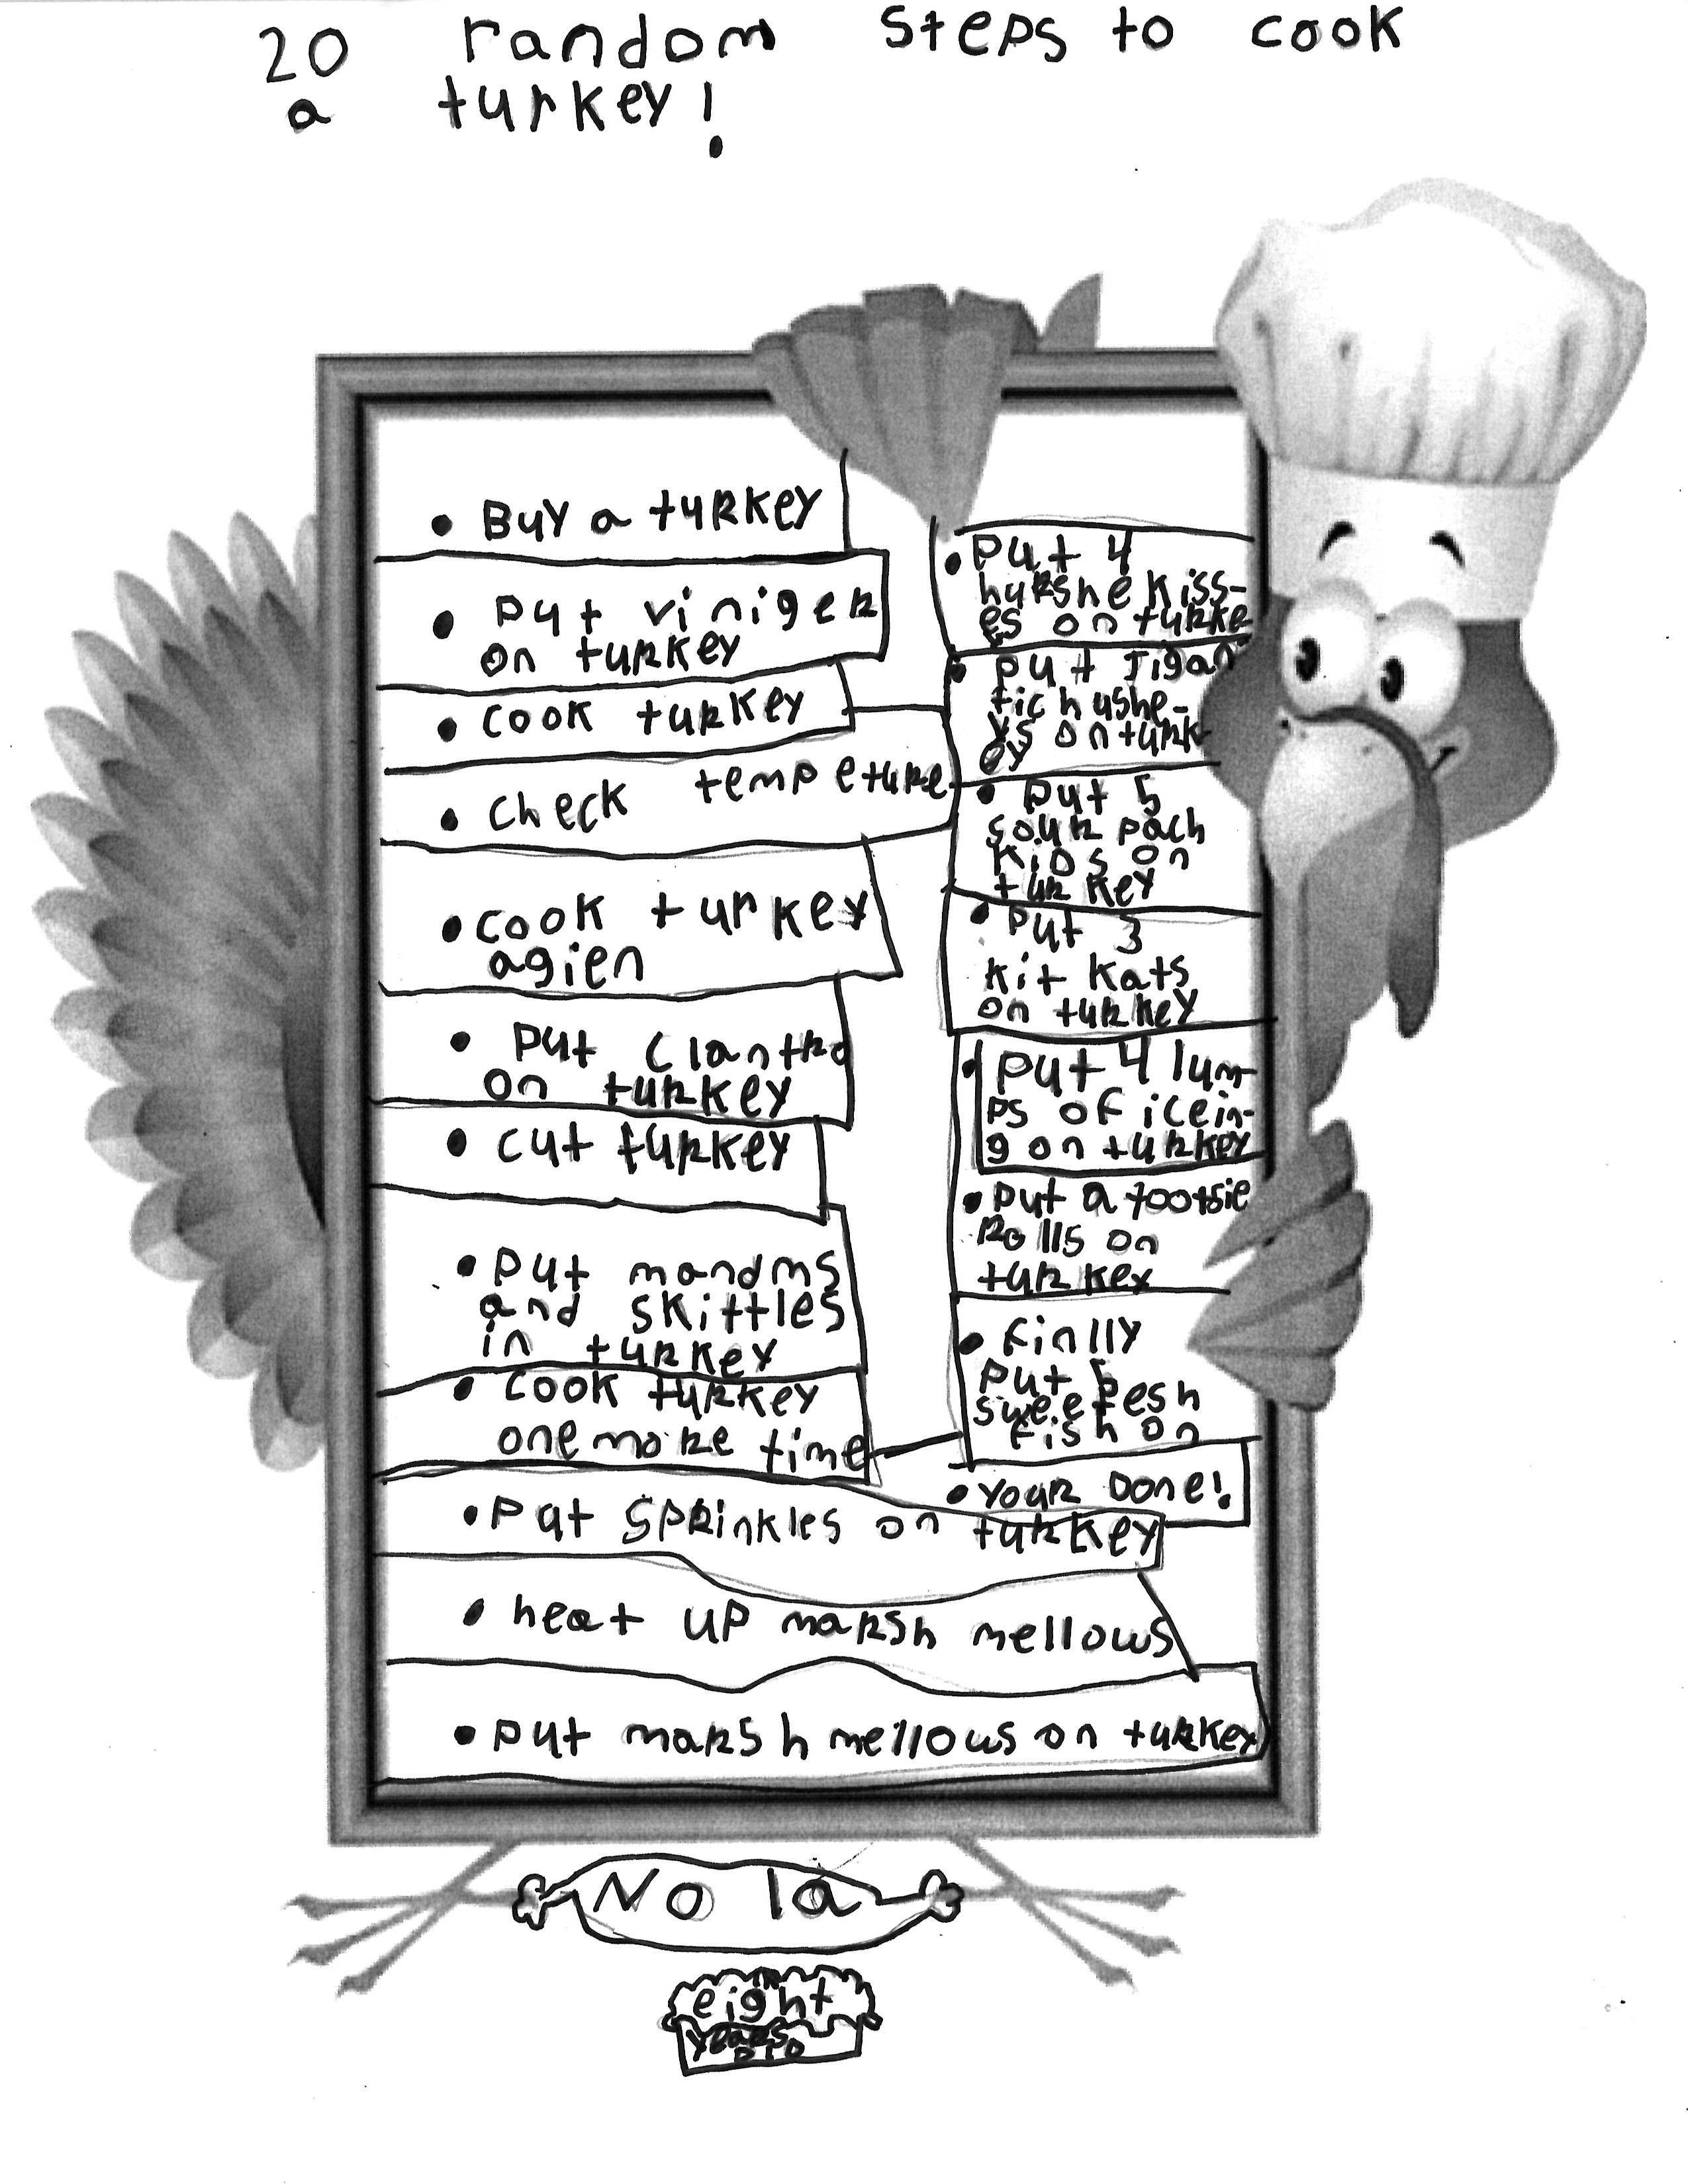 20 random steps to cook
a turkey!
• Buy a turkey
• put viniger
on turkey
• cook turkey
• check tempeture
• cook turkey
agien
• put clantro
on turkey
• cut turkey
• put mandms
and skittles
in turkey
• cook turkey
one more time
• put sprinkles on turkey
• heat up marsh mellows
• put marsh mellows on turkey
• put 4
hurshe kiss-
es on turke
• put jigan
tic hushe-
ys on turk
ey
• put 5
sour pach
kids on
turkey
• put 3
kit kats
on turkey
• put 4 lum-
ps of icein-
g on turkey
• put a tootsie
Rolls on
turkey
• finlly
put 5
sweetesh
fish on
• your Done!
Nola
eight
years
old